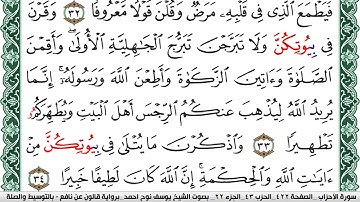 فَيَطْمَعَ ٱلَّذِى فِى قَلْبِهِۦ مَرَضٌ وَقُلْنَ قَوْلًا مَّعْرُوفًا ٣٢ وَقَرْنَ
فِى بِيُوتِكُنَّ وَلَا تَبَرَّجْنَ تَبَرُّجَ ٱلْجَٰهِلِيَّةِ ٱلْأُولَىٰ وَأَقِمْنَ
ٱلصَّلَوٰةَ وَءَاتِينَ ٱلزَّكَوٰةَ وَأَطِعْنَ ٱللَّهَ وَرَسُولَهُۥٓ إِنَّمَا
يُرِيدُ ٱللَّهُ لِيُذْهِبَ عَنكُمُ ٱلرِّجْسَ أَهْلَ ٱلْبَيْتِ وَيُطَهِّرَكُمْ
تَطْهِيرًا ٣٣ وَٱذْكُرْنَ مَا يُتْلَىٰ فِى بِيُوتِكُنَّ مِنْ
ءَايَٰتِ ٱللَّهِ وَٱلْحِكْمَةِ إِنَّ ٱللَّهَ كَانَ لَطِيفًا خَبِيرًا ٣٤
سورة الأحزاب الصفحة ٤٢٢ الحزب ٤٣ الجزء ٢٢ بصوت الشيخ يوسف نوح احمد برواية قالون عن نافع - بالتوسيط والصلة